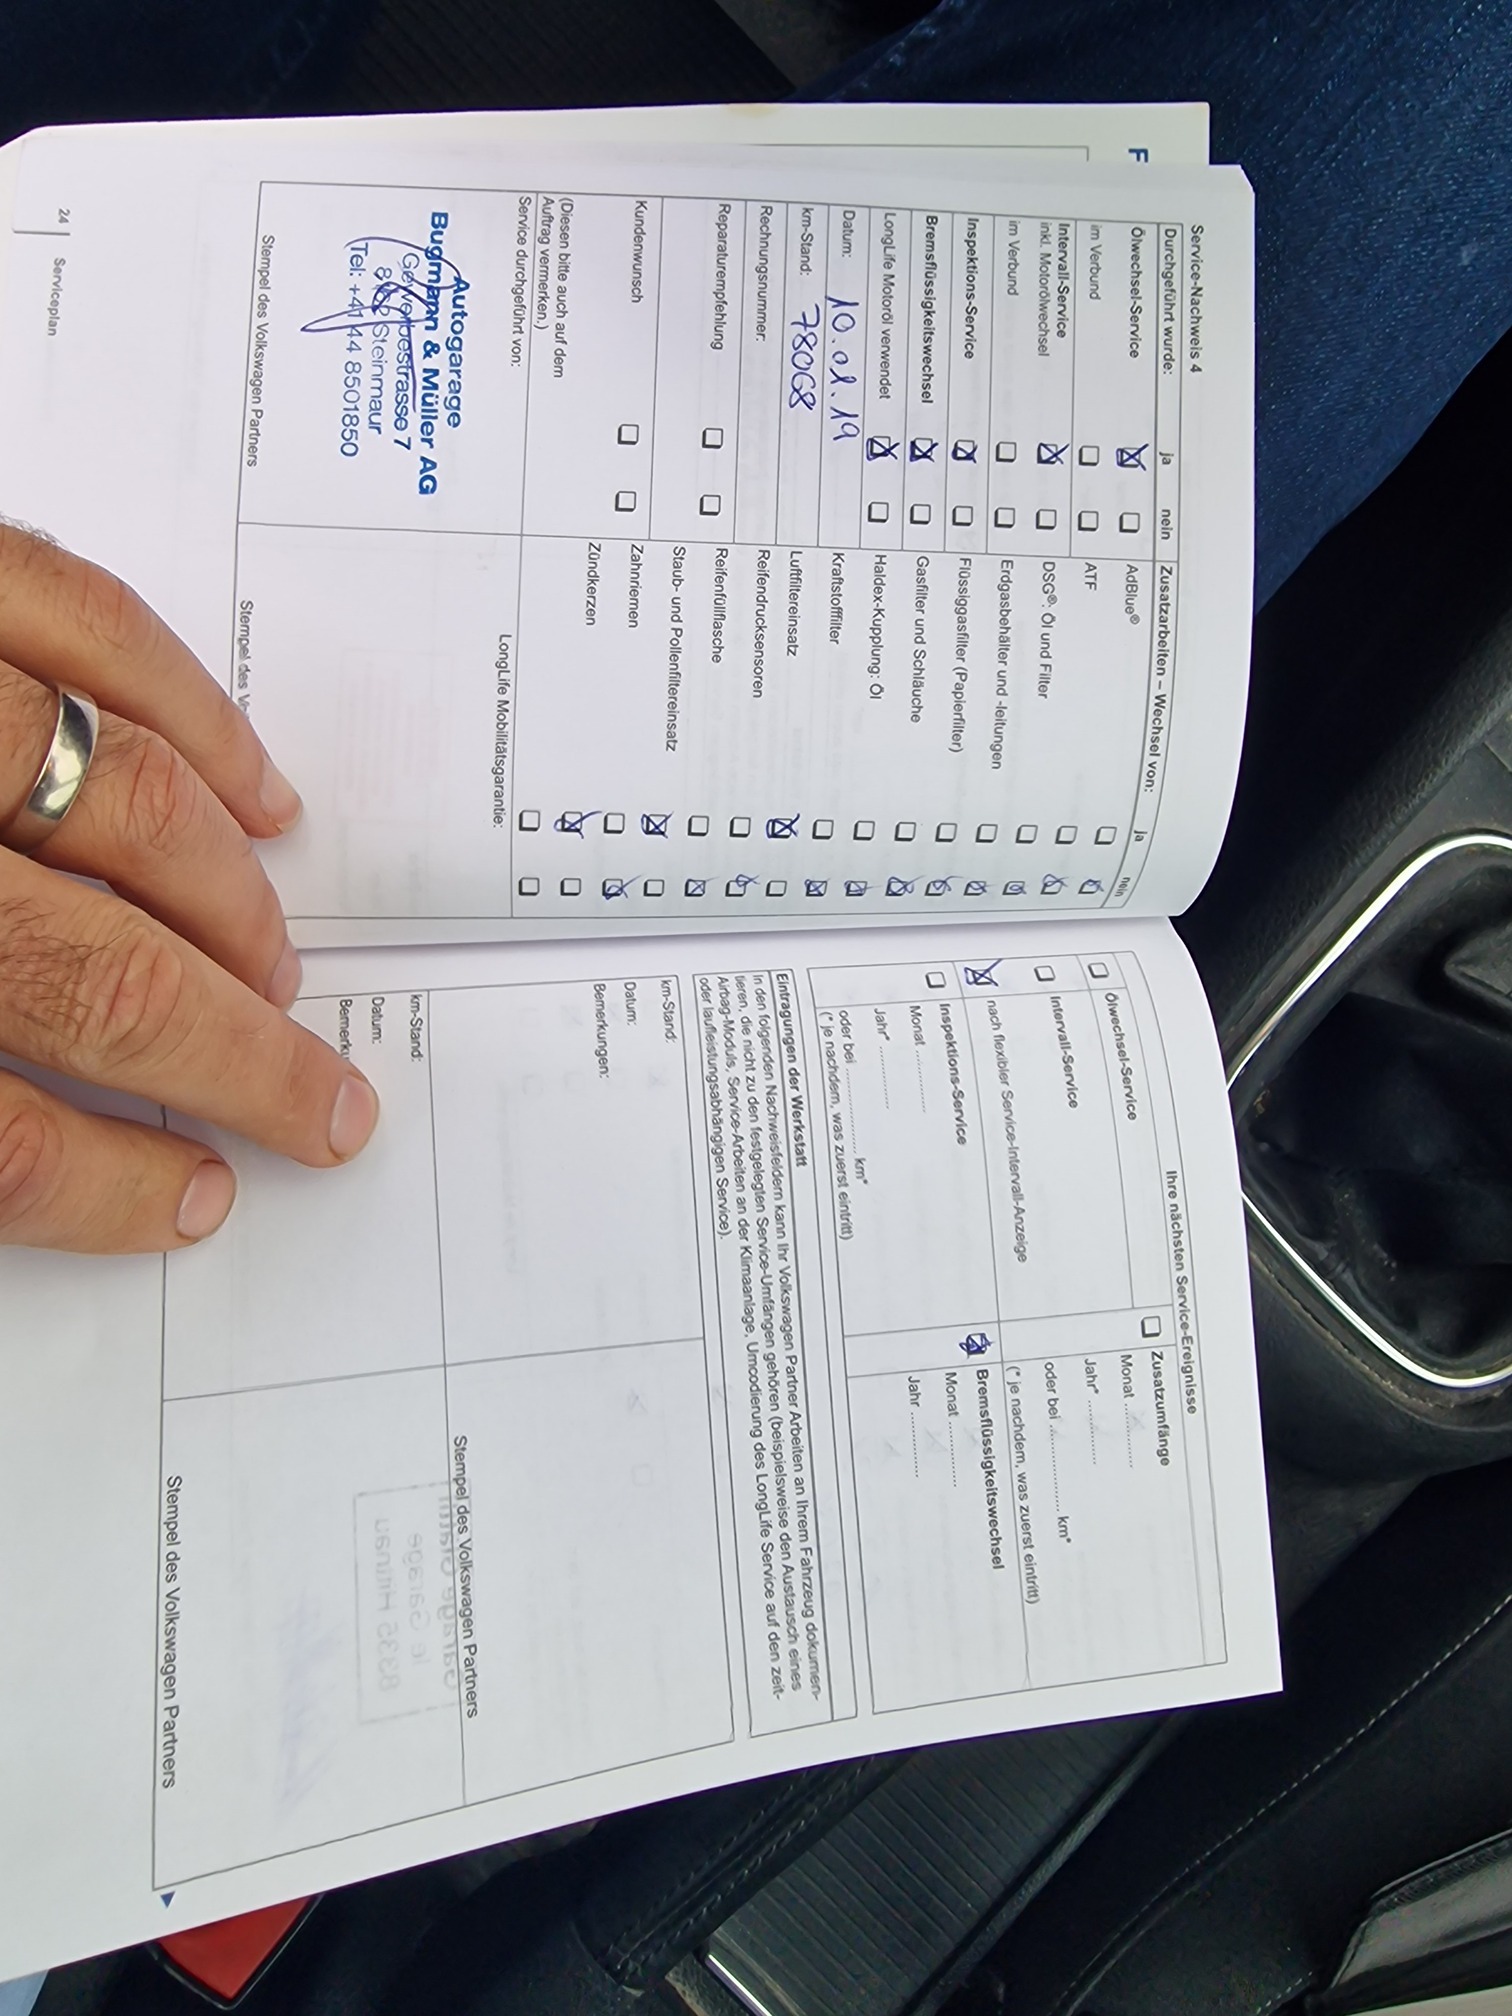 F
Service-Nachweis 4
Durchgeführt wurde: ja nein
Ölwechsel-Service
im Verbund
Intervall-Service
inkl. Motorölwechsel
im Verbund
Inspektions-Service
Bremsflüssigkeitswechsel
LongLife Motoröl verwendet
Datum: 10.01.19
km-Stand: 78068
Rechnungsnummer:
Reparaturempfehlung
Kundenwunsch
(Diesen bitte auch auf dem
Auftrag vermerken.)
Service durchgeführt von:
Autogarage
Bugmann & Müller AG
Gewerbestrasse 7
Steinmaur
Tel: +41 44 8501850
Stempel des Volkswagen Partners
Zusatzarbeiten – Wechsel von: ja nein
AdBlue®
ATF
DSG®: Öl und Filter
Erdgasbehälter und -leitungen
Flüssiggasfilter (Papierfilter)
Gasfilter und Schläuche
Haldex-Kupplung: Öl
Kraftstofffilter
Luftfiltereinsatz
Reifendrucksensoren
Reifenfüllflasche
Staub- und Pollenfiltereinsatz
Zahnriemen
Zündkerzen
LongLife Mobilitätsgarantie:
Stempel des
24
Serviceplan
Ihre nächsten Service-Ereignisse
Ölwechsel-Service
Intervall-Service
nach flexibler Service-Intervall-Anzeige
Inspektions-Service
Monat ............
Jahr* ............
oder bei ................ km*
(* je nachdem, was zuerst eintritt)
Zusatzumfänge
Monat ............
Jahr* ............
oder bei ................ km*
(* je nachdem, was zuerst eintritt)
Bremsflüssigkeitswechsel
Monat ............
Jahr ............
Eintragungen der Werkstatt
In den folgenden Nachweisfeldern kann Ihr Volkswagen Partner Arbeiten an Ihrem Fahrzeug dokumen-
tieren, die nicht zu den festgelegten Service-Umfängen gehören (beispielsweise den Austausch eines
Airbag-Moduls, Service-Arbeiten an der Klimaanlage, Umcodierung des LongLife Service auf den zeit-
oder laufleistungsabhängigen Service).
km-Stand:
Datum:
Bemerkungen:
Stempel des Volkswagen Partners
km-Stand:
Datum:
Stempel des Volkswagen Partners